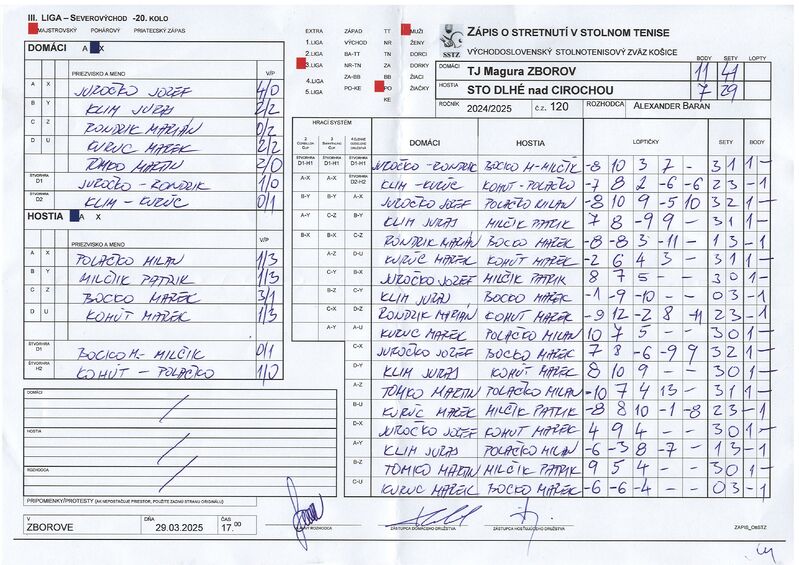 III. LIGA – SEVEROVÝCHOD -20. KOLO
MAJSTROVSKÝ POHÁROVÝ PRIATEĽSKÝ ZÁPAS
DOMÁCI A X
PRIEZVISKO A MENO V/P
A X JUROČKO JOZEF 4/0
B Y KLIM JURAJ 2/2
C Z RONDRIK MARIÁN 0/2
D U KURUC MAREK 2/2
TOMKO MARTIN 2/0
ŠTVORHRA D1 JUROČKO - RONDRIK 1/0
ŠTVORHRA D2 KLIM - KURUC 0/1
HOSTIA A X
PRIEZVISKO A MENO V/P
A X POLAČKO MILAN 1/3
B Y MILČIK PATRIK 1/3
C Z BOCKO MAREK 3/1
D U KOHÚT MAREK 1/3
ŠTVORHRA D1 BOCKO M.- MILČIK 0/1
ŠTVORHRA H2 KOHÚT - POLAČKO 1/0
DOMÁCI
HOSTIA
ROZHODCA
PRIPOMIENKY/PROTESTY (AK NEPOSTAČUJE PRIESTOR, POUŽITE ZADNÚ STRANU ORIGINÁLU)
V ZBOROVE DŇA 29.03.2025 ČAS 17.00
EXTRA ZÁPAD TT MUŽI
1.LIGA VÝCHOD NR ŽENY
2.LIGA BA-TT TN DORCI
3.LIGA NR-TN ZA DORKY
4.LIGA ZA-BB BB ŽIACI
5.LIGA PO-KE PO ŽIAČKY
KE
SSTZ
ZÁPIS O STRETNUTÍ V STOLNOM TENISE
VÝCHODOSLOVENSKÝ STOLNOTENISOVÝ ZVÄZ KOŠICE
BODY SETY LOPTY
DOMÁCI TJ Magura ZBOROV 11 41
HOSTIA STO DLHÉ nad CIROCHOU 7 29
ROČNÍK 2024/2025 č.z. 120 ROZHODCA ALEXANDER BARAN
HRACÍ SYSTÉM
DOMÁCI HOSTIA LOPTIČKY SETY BODY
D1-H1 D1-H1 D1-H1 JUROČKO - RONDRIK BOCKO M-MILČIK -8 10 3 7 - 3 1 1 -
A-X A-X D2-H2 KLIM - KURUC KOHÚT - POLAČKO -7 8 2 -6 -6 2 3 - 1
B-Y B-Y A-X JUROČKO JOZEF POLAČKO MILAN -8 10 9 -5 10 3 2 1 -
A-Y C-Z B-Y KLIM JURAJ MILČIK PATRIK 7 8 -9 9 - 3 1 1 -
B-X B-X C-Z RONDRIK MARIÁN BOCKO MAREK -8 -8 3 -11 - 1 3 - 1
A-Z D-U KURUC MAREK KOHÚT MAREK -2 6 4 3 - 3 1 1 -
C-Y B-X JUROČKO JOZEF MILČIK PATRIK 8 7 5 - - 3 0 1 -
B-Z C-Y KLIM JURAJ BOCKO MAREK -1 -9 -10 - - 0 3 - 1
C-X D-Z RONDRIK MARIÁN KOHÚT MAREK -9 12 -2 8 -11 2 3 - 1
A-Y A-U KURUC MAREK POLAČKO MILAN 10 7 5 - - 3 0 1 -
C-X JUROČKO JOZEF BOCKO MAREK 7 8 -6 -9 9 3 2 1 -
D-Y KLIM JURAJ KOHÚT MAREK 8 10 9 - - 3 0 1 -
A-Z TOMKO MARTIN POLAČKO MILAN -10 7 4 13 - 3 1 1 -
B-U KURUC MAREK MILČIK PATRIK -8 8 10 -1 -8 2 3 - 1
D-X JUROČKO JOZEF KOHÚT MAREK 4 9 4 - - 3 0 1 -
A-Y KLIM JURAJ POLAČKO MILAN -6 -3 8 -7 - 1 3 - 1
B-Z TOMKO MARTIN MILČIK PATRIK 9 5 4 - - 3 0 1 -
C-U KURUC MAREK BOCKO MAREK -6 -6 -4 - - 0 3 - 1
ROZHODCA
ZÁSTUPCA DOMÁCEHO DRUŽSTVA
ZÁSTUPCA HOSŤUJÚCEHO DRUŽSTVA
ZAPIS_OdSTZ